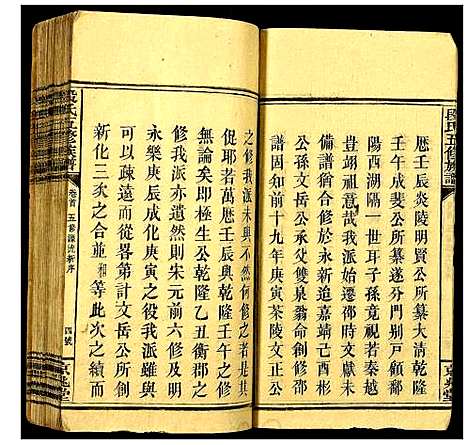 段氏五修族譜
曆壬辰炎陵明賢公所纂大清乾隆
壬午成斐公所纂遂分門別戸顧鄱
陽西湖隔一世耳子孫竟視若秦越
豈翊祖意哉始遷邵時文岳公所修
譜倘知合修於永新追嘉靖己酉内
公長孫文忠公承父雙泉翁命創修
譜固知前十九年庚寅茶陵文正公
之修我派未與不然何修之
促耶若萬曆壬辰與乾隆壬午之修
無論矣即極生公乾隆乙丑衡郡之
修我派亦遺然則朱元前六修及明
永樂庚辰成化庚寅之役我派雖與
可以疎遠而從畧第計文岳公所創
新化二次之合並湘等此次之續而
卷首 五修源流新序
四號
京兆堂